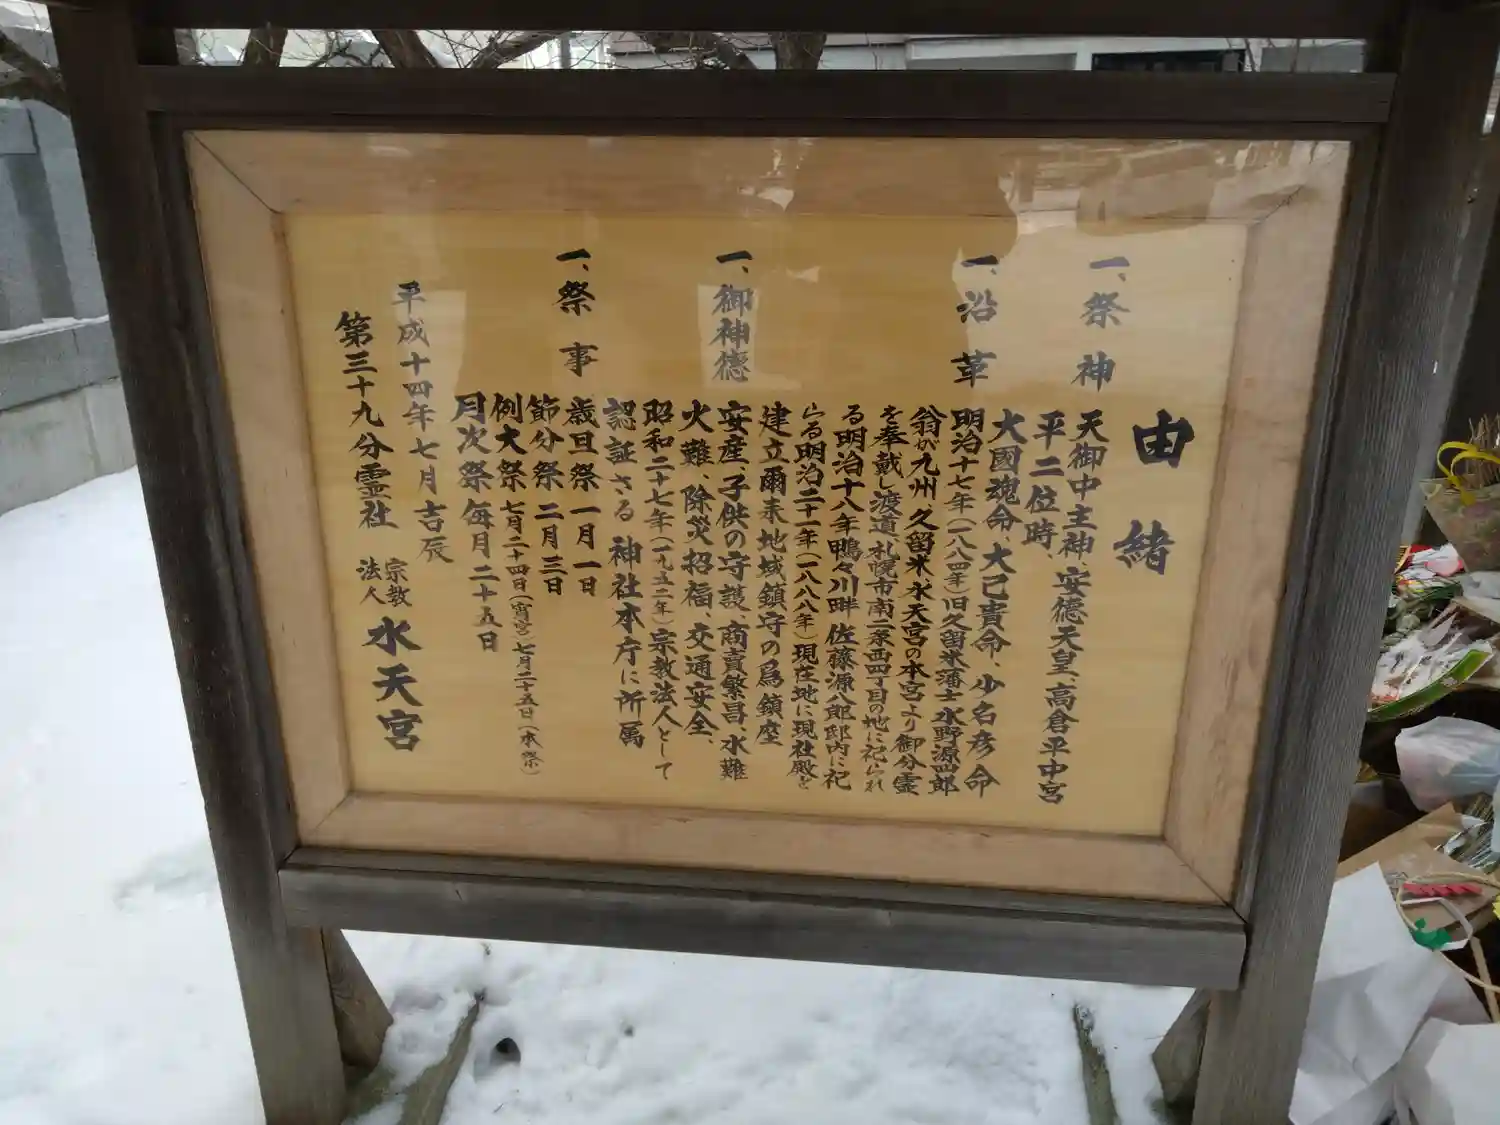 由緒
一、祭神
天御中主神、安徳天皇、高倉平中宮
平二位時
大國魂命、大己貴命、少名彦命
一、沿革
明治十七年(一八八四年)旧久留米藩士水野源四郎
翁が九州久留米水天宮の本宮より御分霊
を奉戴し渡道札幌市南二条西四丁目の地に祀られ
る明治十八年鴨々川畔佐藤源八郎邸内に祀
らる明治二十一年(一八八八年)現在地に現社殿を
建立爾来地域鎮守の為鎮座
一、御神徳
安産、子供の守護、商賣繁昌、水難
火難、除災招福、交通安全、
昭和二十七年(一九五二年)宗教法人として
認証さる神社本庁に所属
一、祭事
歳旦祭一月一日
節分祭二月三日
例大祭七月二十四日(宵宮)七月二十五日(本祭)
月次祭毎月二十五日
平成十四年七月吉辰
第三十九分霊社 宗教法人 水天宮